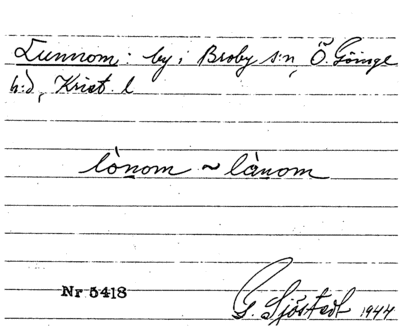 Lunnom: by i Broby s:n, Ö. Göinge
h:d, Krist. l
lònom ~ lànom
Nr 5418
G. Sjöstedt 1944